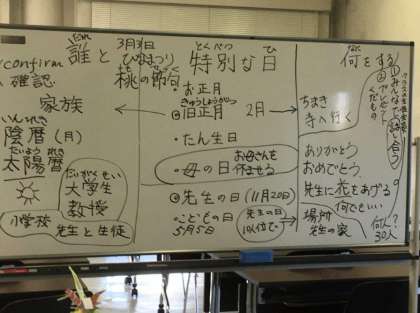 だれ
誰と
confirm
確認
家族
いんれき
陰暦(月)
たいようれき
太陽暦
だいがくせい
大学生
教授
小学校
先生と生徒
3月3日
ひなまつり
桃の節句
とくべつ
特別な日
ひ
お正月
きゅうしょうがつ
旧正月 2月
・たん生日
・母の日
お母さんを
休ませる
先生の日(11月20日)
・こどもの日
5月5日
先生の日
なに
何をする
ちまき
寺へ行く
ありがとう
おめでとう
先生に花をあげる
何でもいい
場所
先生の家
何人?
30人
①みんなで話し合う
くだもの